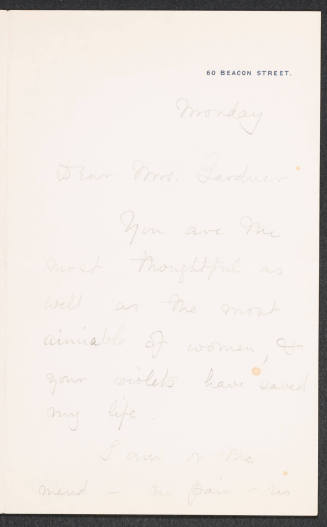 60 BEACON STREET.
Monday
Dear Mrs. Gardner
You are the
most thoughtful as
well as the most
amiable of women, &
your violets have saved
my life.
I am on the
mend - no pain - no